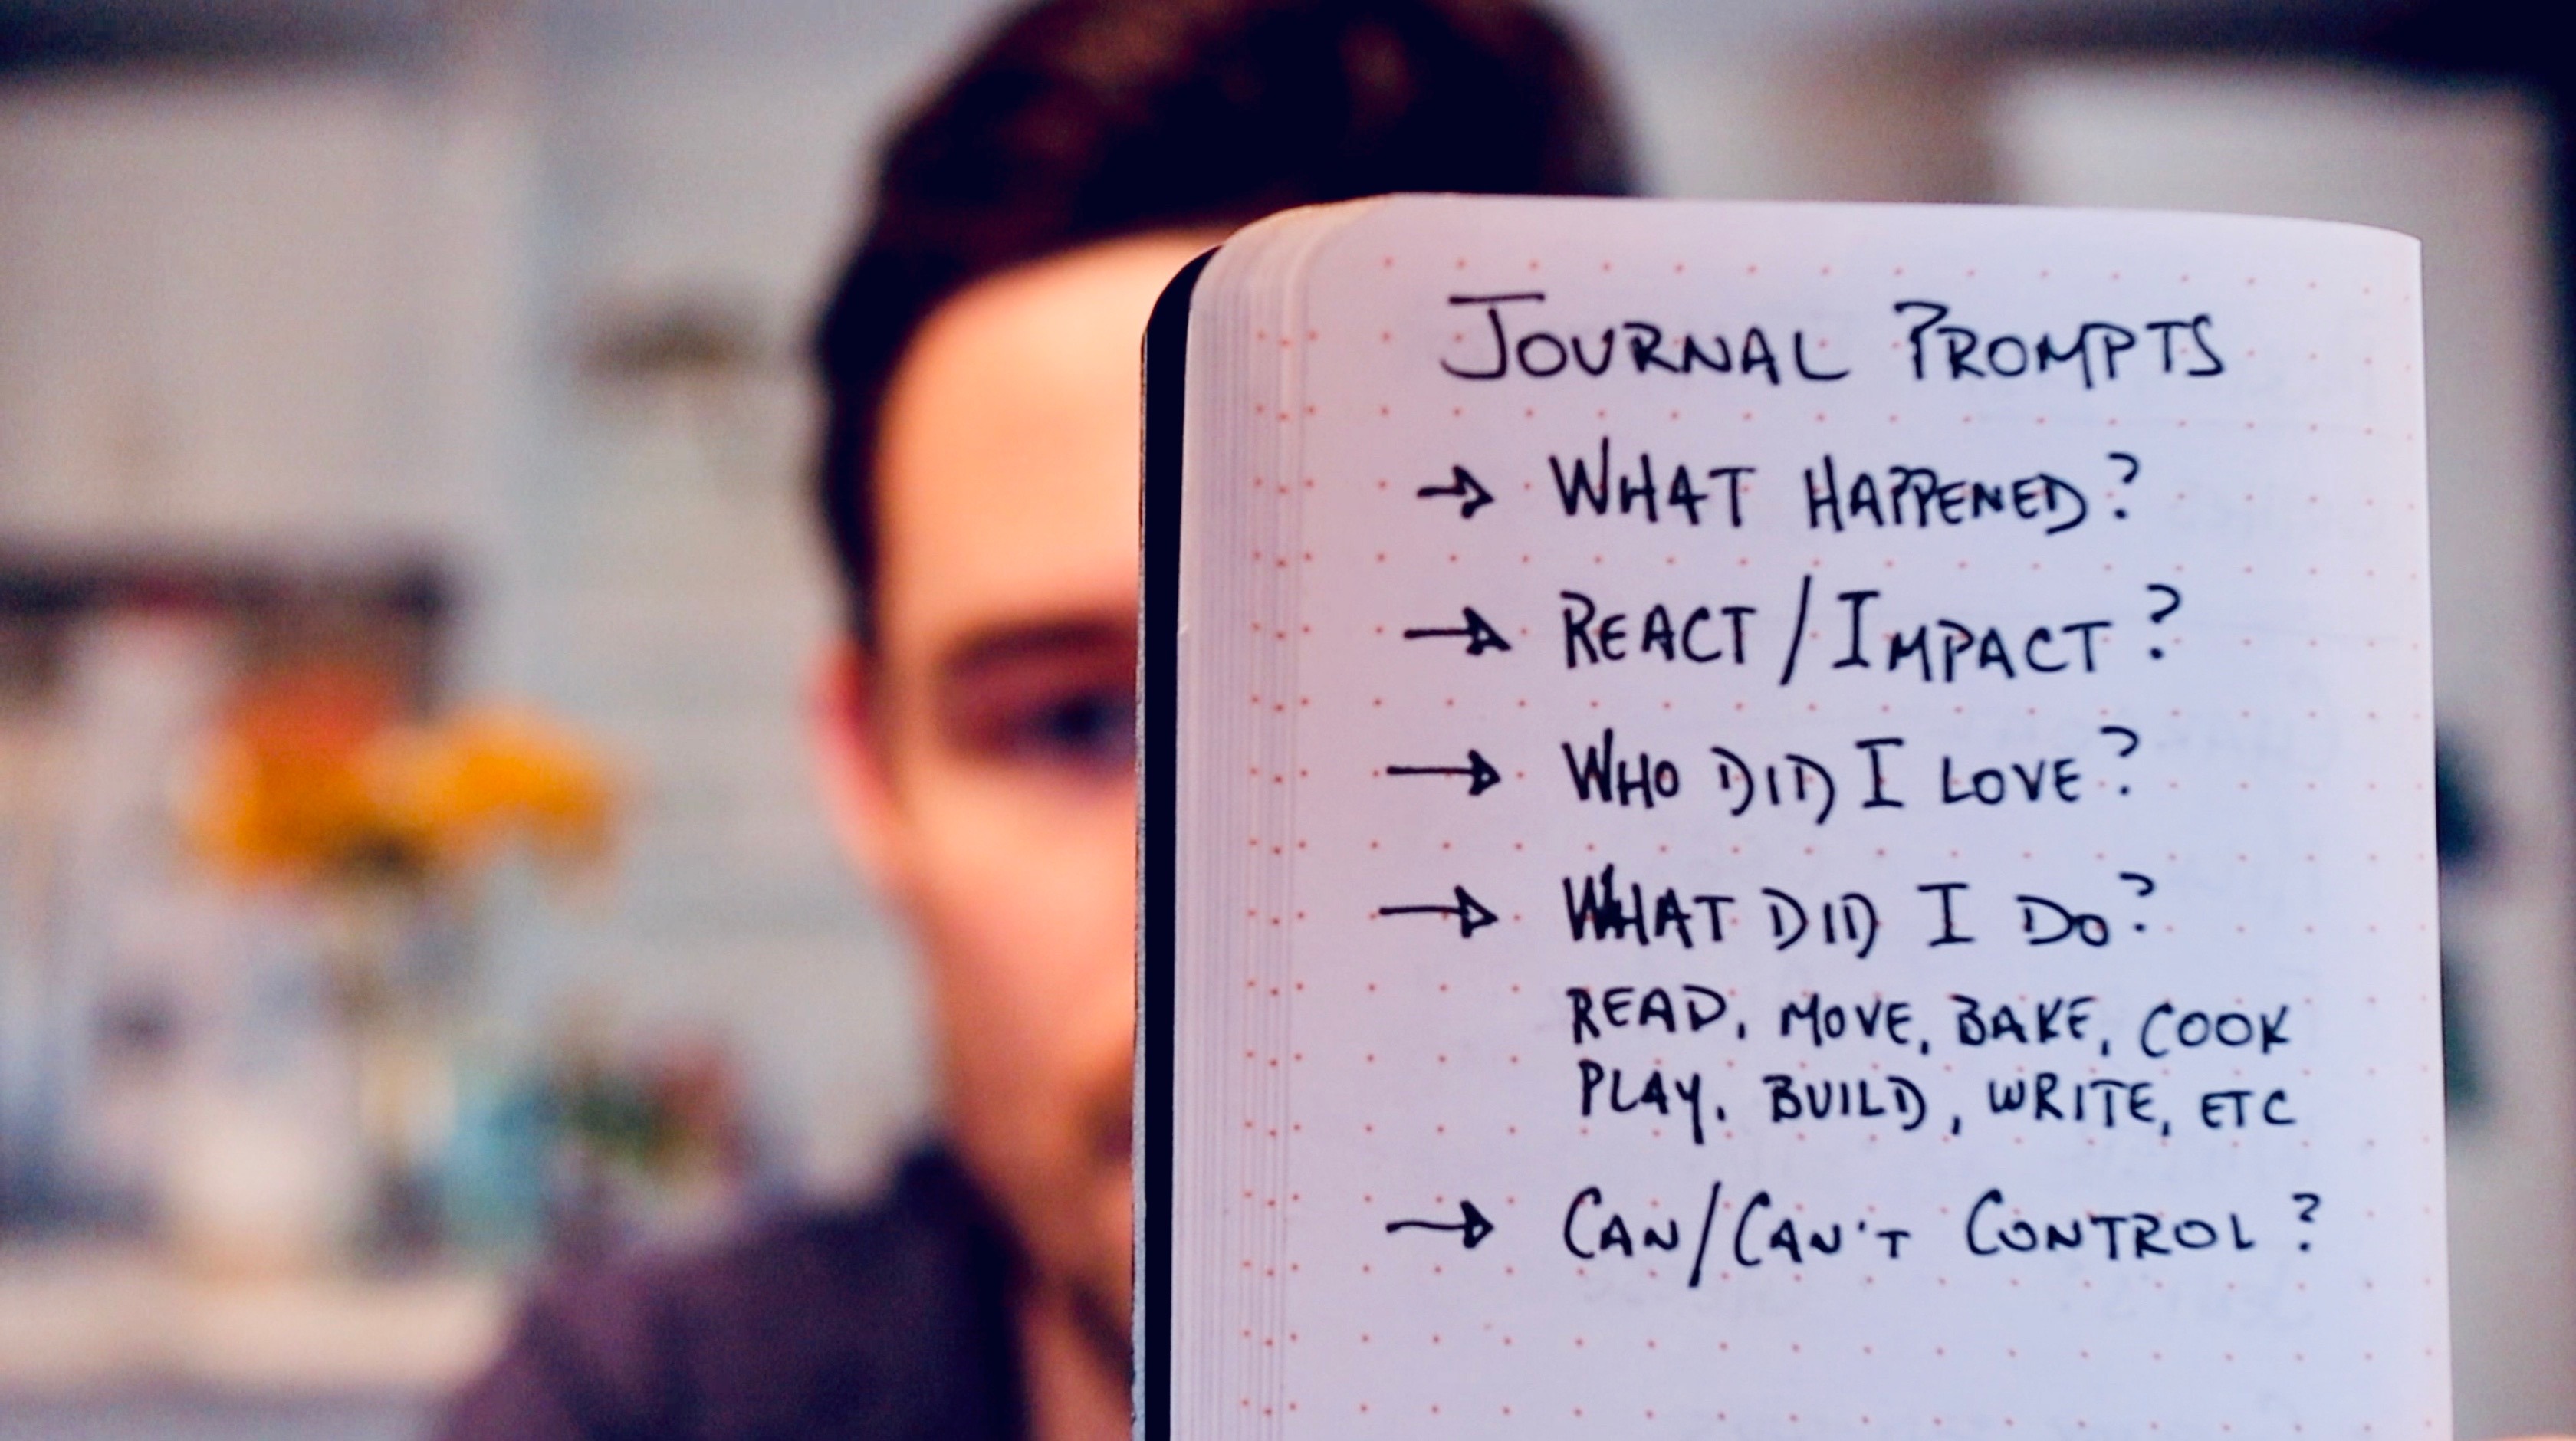 JOURNAL PROMPTS
→ WHAT HAPPENED?
→ REACT/IMPACT?
→ WHO DID I LOVE?
→ WHAT DID I DO?
READ, MOVE, BAKE, COOK
PLAY, BUILD, WRITE, ETC
→ CAN/CAN'T CONTROL?